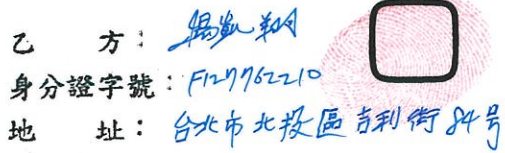 乙 方：楊凱翔
身分證字號：F127762210
地 址：台北市北投區吉利街84号